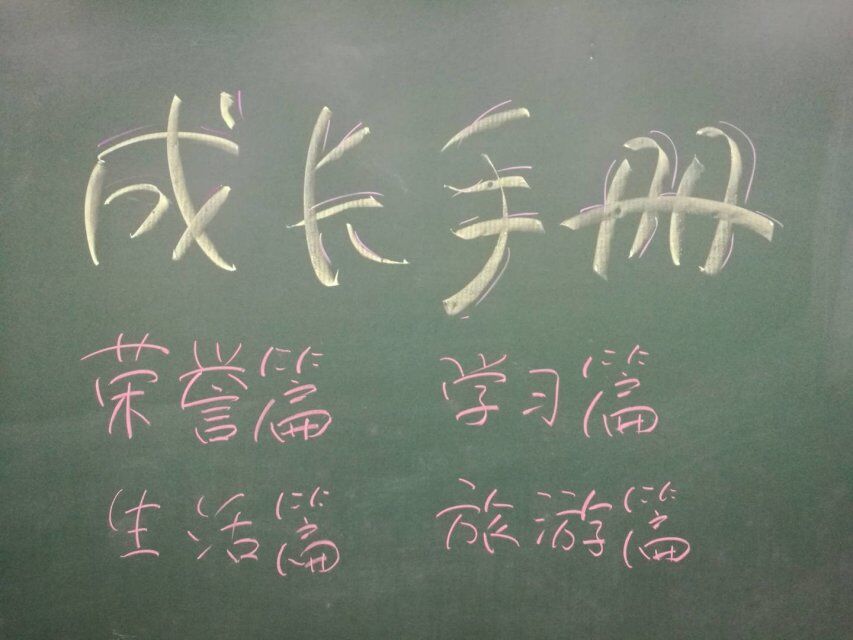 成长手册
荣誉篇 学习篇
生活篇 旅游篇